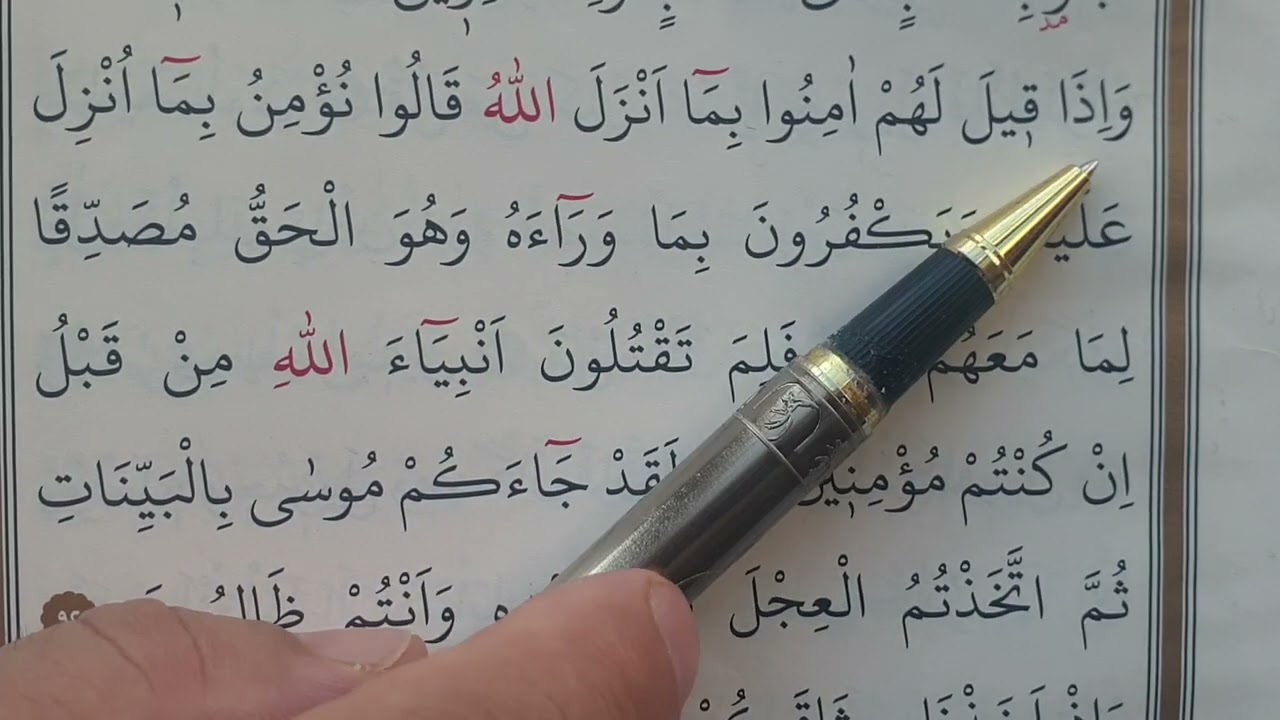 وَاِذَا قٖيلَ لَهُمْ اٰمِنُوا بِمَٓا اَنْزَلَ اللّٰهُ قَالُوا نُؤْمِنُ بِمَٓا اُنْزِلَ
وَرَٓاءَهُ وَهُوَ الْحَقُّ مُصَدِّقًا بِمَا
لِمَا مَعَهُمْ فَلِمَ تَقْتُلُونَ اَنْبِيَٓاءَ اللّٰهِ مِنْ قَبْلُ
اِنْ كُنْتُمْ مُؤْمِنٖينَ لَقَدْ جَٓاءَكُمْ مُوسٰى بِالْبَيِّنَاتِ
ثُمَّ اتَّخَذْتُمُ الْعِجْلَ وَاَنْتُمْ